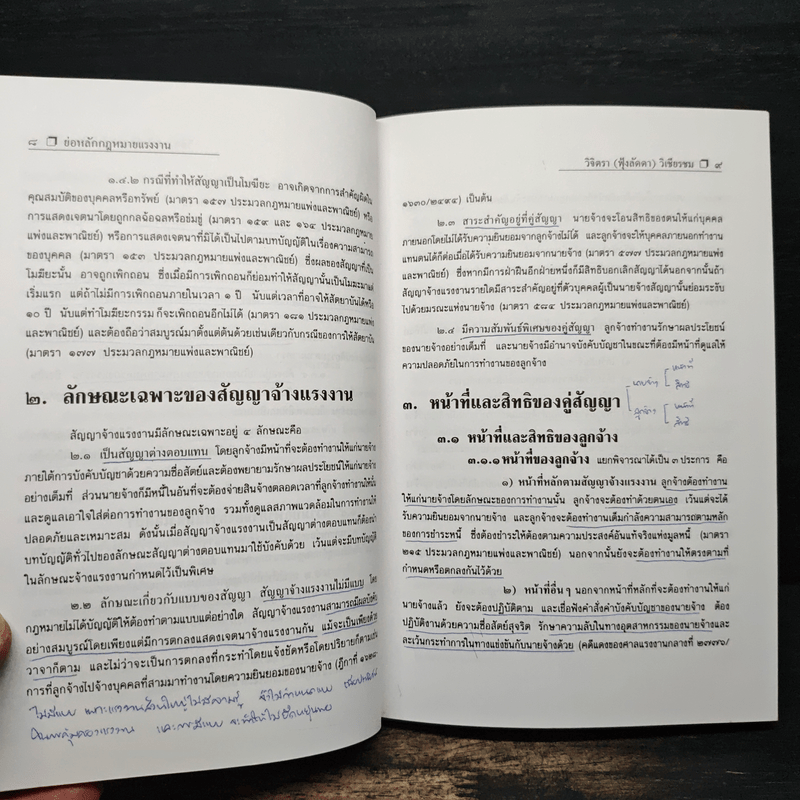 ๘ ❒ ย่อหลักกฎหมายแรงงาน
๑.๔.๒ กรณีที่ทำให้สัญญาเป็นโมฆียะ อาจเกิดจากการสำคัญผิดใน
คุณสมบัติของบุคคลหรือทรัพย์ (มาตรา ๑๕๗ ประมวลกฎหมายแพ่งและพาณิชย์) หรือ
การแสดงเจตนาโดยถูกกลฉ้อฉลหรือข่มขู่ (มาตรา ๑๕๙ และ ๑๖๔ ประมวลกฎหมาย
แพ่งและพาณิชย์) หรือการแสดงเจตนาที่มิได้เป็นไปตามบทบัญญัติในเรื่องความสามารถ
ของบุคคล (มาตรา ๑๕๓ ประมวลกฎหมายแพ่งและพาณิชย์) ซึ่งผลของสัญญาที่เป็น
โมฆียะนั้น อาจถูกเพิกถอน ซึ่งเมื่อมีการเพิกถอนก็ย่อมทำให้สัญญานั้นเป็นโมฆะมาแต่
เริ่มแรก แต่ถ้าไม่มีการเพิกถอนภายในเวลา ๑ ปี นับแต่เวลาที่อาจให้สัตยาบันได้หรือ
๑๐ ปี นับแต่ทำโมฆียะกรรม ก็จะเพิกถอนอีกไม่ได้ (มาตรา ๑๘๑ ประมวลกฎหมาย
แพ่งและพาณิชย์) และต้องถือว่าสมบูรณ์มาตั้งแต่ต้นด้วยเช่นเดียวกับกรณีของการให้สัตยาบัน
(มาตรา ๑๗๗ ประมวลกฎหมายแพ่งและพาณิชย์)
๒. ลักษณะเฉพาะของสัญญาจ้างแรงงาน
สัญญาจ้างแรงงานมีลักษณะเฉพาะอยู่ ๔ ลักษณะคือ
๒.๑ เป็นสัญญาต่างตอบแทน โดยลูกจ้างมีหน้าที่จะต้องทำงานให้แก่นายจ้าง
ภายใต้การบังคับบัญชาด้วยความซื่อสัตย์และต้องพยายามรักษาผลประโยชน์ให้แก่นายจ้าง
อย่างเต็มที่ ส่วนนายจ้างก็มีหนี้ในอันที่จะต้องจ่ายสินจ้างตลอดเวลาที่ลูกจ้างทำงานให้นั้น
และดูแลเอาใจใส่ต่อการทำงานของลูกจ้าง รวมทั้งดูแลสภาพแวดล้อมในการทำงานให้
ปลอดภัยและเหมาะสม ดังนั้นเมื่อสัญญาจ้างแรงงานเป็นสัญญาต่างตอบแทนก็ต้องนำ
บทบัญญัติทั่วไปของลักษณะสัญญาต่างตอบแทนมาใช้บังคับด้วย เว้นแต่จะมีบทบัญญัติ
ในลักษณะจ้างแรงงานกำหนดไว้เป็นพิเศษ
๒.๒ ลักษณะเกี่ยวกับแบบของสัญญา สัญญาจ้างแรงงานไม่มีแบบ โดย
กฎหมายไม่ได้บัญญัติให้ต้องทำตามแบบแต่อย่างใด สัญญาจ้างแรงงานสามารถมีผลบังคับ
อย่างสมบูรณ์โดยเพียงแต่มีการตกลงแสดงเจตนาจ้างแรงงานกัน แม้จะเป็นเพียงด้วย
วาจาก็ตาม และไม่ว่าจะเป็นการตกลงที่กระทำโดยแจ้งชัดหรือโดยปริยายก็ตามเช่น
การที่ลูกจ้างไปจ้างบุคคลที่สามมาทำงานโดยความยินยอมของนายจ้าง (ฎีกาที่ ๑๖๒๘-
ไม่มีแบบ เพราะแรงงานส่วนใหญ่ไม่มีความรู้
วิจิตรา (ฟุ้งลัดดา) วิเชียรชม ❒ ๙
๑๖๓๐/๒๕๒๔) เป็นต้น
๒.๓ สาระสำคัญอยู่ที่คู่สัญญา นายจ้างจะโอนสิทธิของตนให้แก่บุคคล
ภายนอกโดยไม่ได้รับความยินยอมจากลูกจ้างไม่ได้ และลูกจ้างจะให้บุคคลภายนอกทำงาน
แทนตนได้ก็ต่อเมื่อได้รับความยินยอมจากนายจ้าง (มาตรา ๕๗๗ ประมวลกฎหมายแพ่ง
และพาณิชย์) ซึ่งหากมีการฝ่าฝืนอีกฝ่ายหนึ่งก็มีสิทธิบอกเลิกสัญญาได้นอกจากนั้นถ้า
สัญญาจ้างแรงงานรายใดมีสาระสำคัญอยู่ที่ตัวบุคคลผู้เป็นนายจ้างสัญญานั้นย่อมระงับ
ไปด้วยมรณะแห่งนายจ้าง (มาตรา ๕๘๔ ประมวลกฎหมายแพ่งและพาณิชย์)
๒.๔ มีความสัมพันธ์พิเศษของคู่สัญญา ลูกจ้างทำงานรักษาผลประโยชน์
ของนายจ้างอย่างเต็มที่ และนายจ้างมีอำนาจบังคับบัญชาในขณะที่ต้องมีหน้าที่ดูแลให้
ความปลอดภัยในการทำงานของลูกจ้าง
๓. หน้าที่และสิทธิของคู่สัญญา
นายจ้าง หน้าที่ สิทธิ
ลูกจ้าง หน้าที่ สิทธิ
๓.๑ หน้าที่และสิทธิของลูกจ้าง
๓.๑.๑ หน้าที่ของลูกจ้าง แยกพิจารณาได้เป็น ๓ ประการ คือ
๑) หน้าที่หลักตามสัญญาจ้างแรงงาน ลูกจ้างต้องทำงาน
ให้แก่นายจ้างโดยลักษณะของการทำงานนั้น ลูกจ้างจะต้องทำด้วยตนเอง เว้นแต่จะได้
รับความยินยอมจากนายจ้าง และลูกจ้างจะต้องทำงานเต็มกำลังความสามารถตามหลัก
ของการชำระหนี้ ซึ่งต้องชำระให้ต้องตามความประสงค์อันแท้จริงแห่งมูลหนี้ (มาตรา
๒๑๕ ประมวลกฎหมายแพ่งและพาณิชย์) นอกจากนั้นยังจะต้องทำงานให้ตรงตามที่
กำหนดหรือตกลงกันไว้ด้วย
๒) หน้าที่อื่น ๆ นอกจากหน้าที่หลักที่จะต้องทำงานให้แก่
นายจ้างแล้ว ยังจะต้องปฏิบัติตาม และเชื่อฟังคำสั่งคำบังคับบัญชาของนายจ้าง ต้อง
ปฏิบัติงานด้วยความซื่อสัตย์สุจริต รักษาความลับในทางอุตสาหกรรมของนายจ้างและ
ละเว้นกระทำการในทางแข่งขันกับนายจ้างด้วย (คดีแดงของศาลแรงงานกลางที่ ๒๗๗๖/